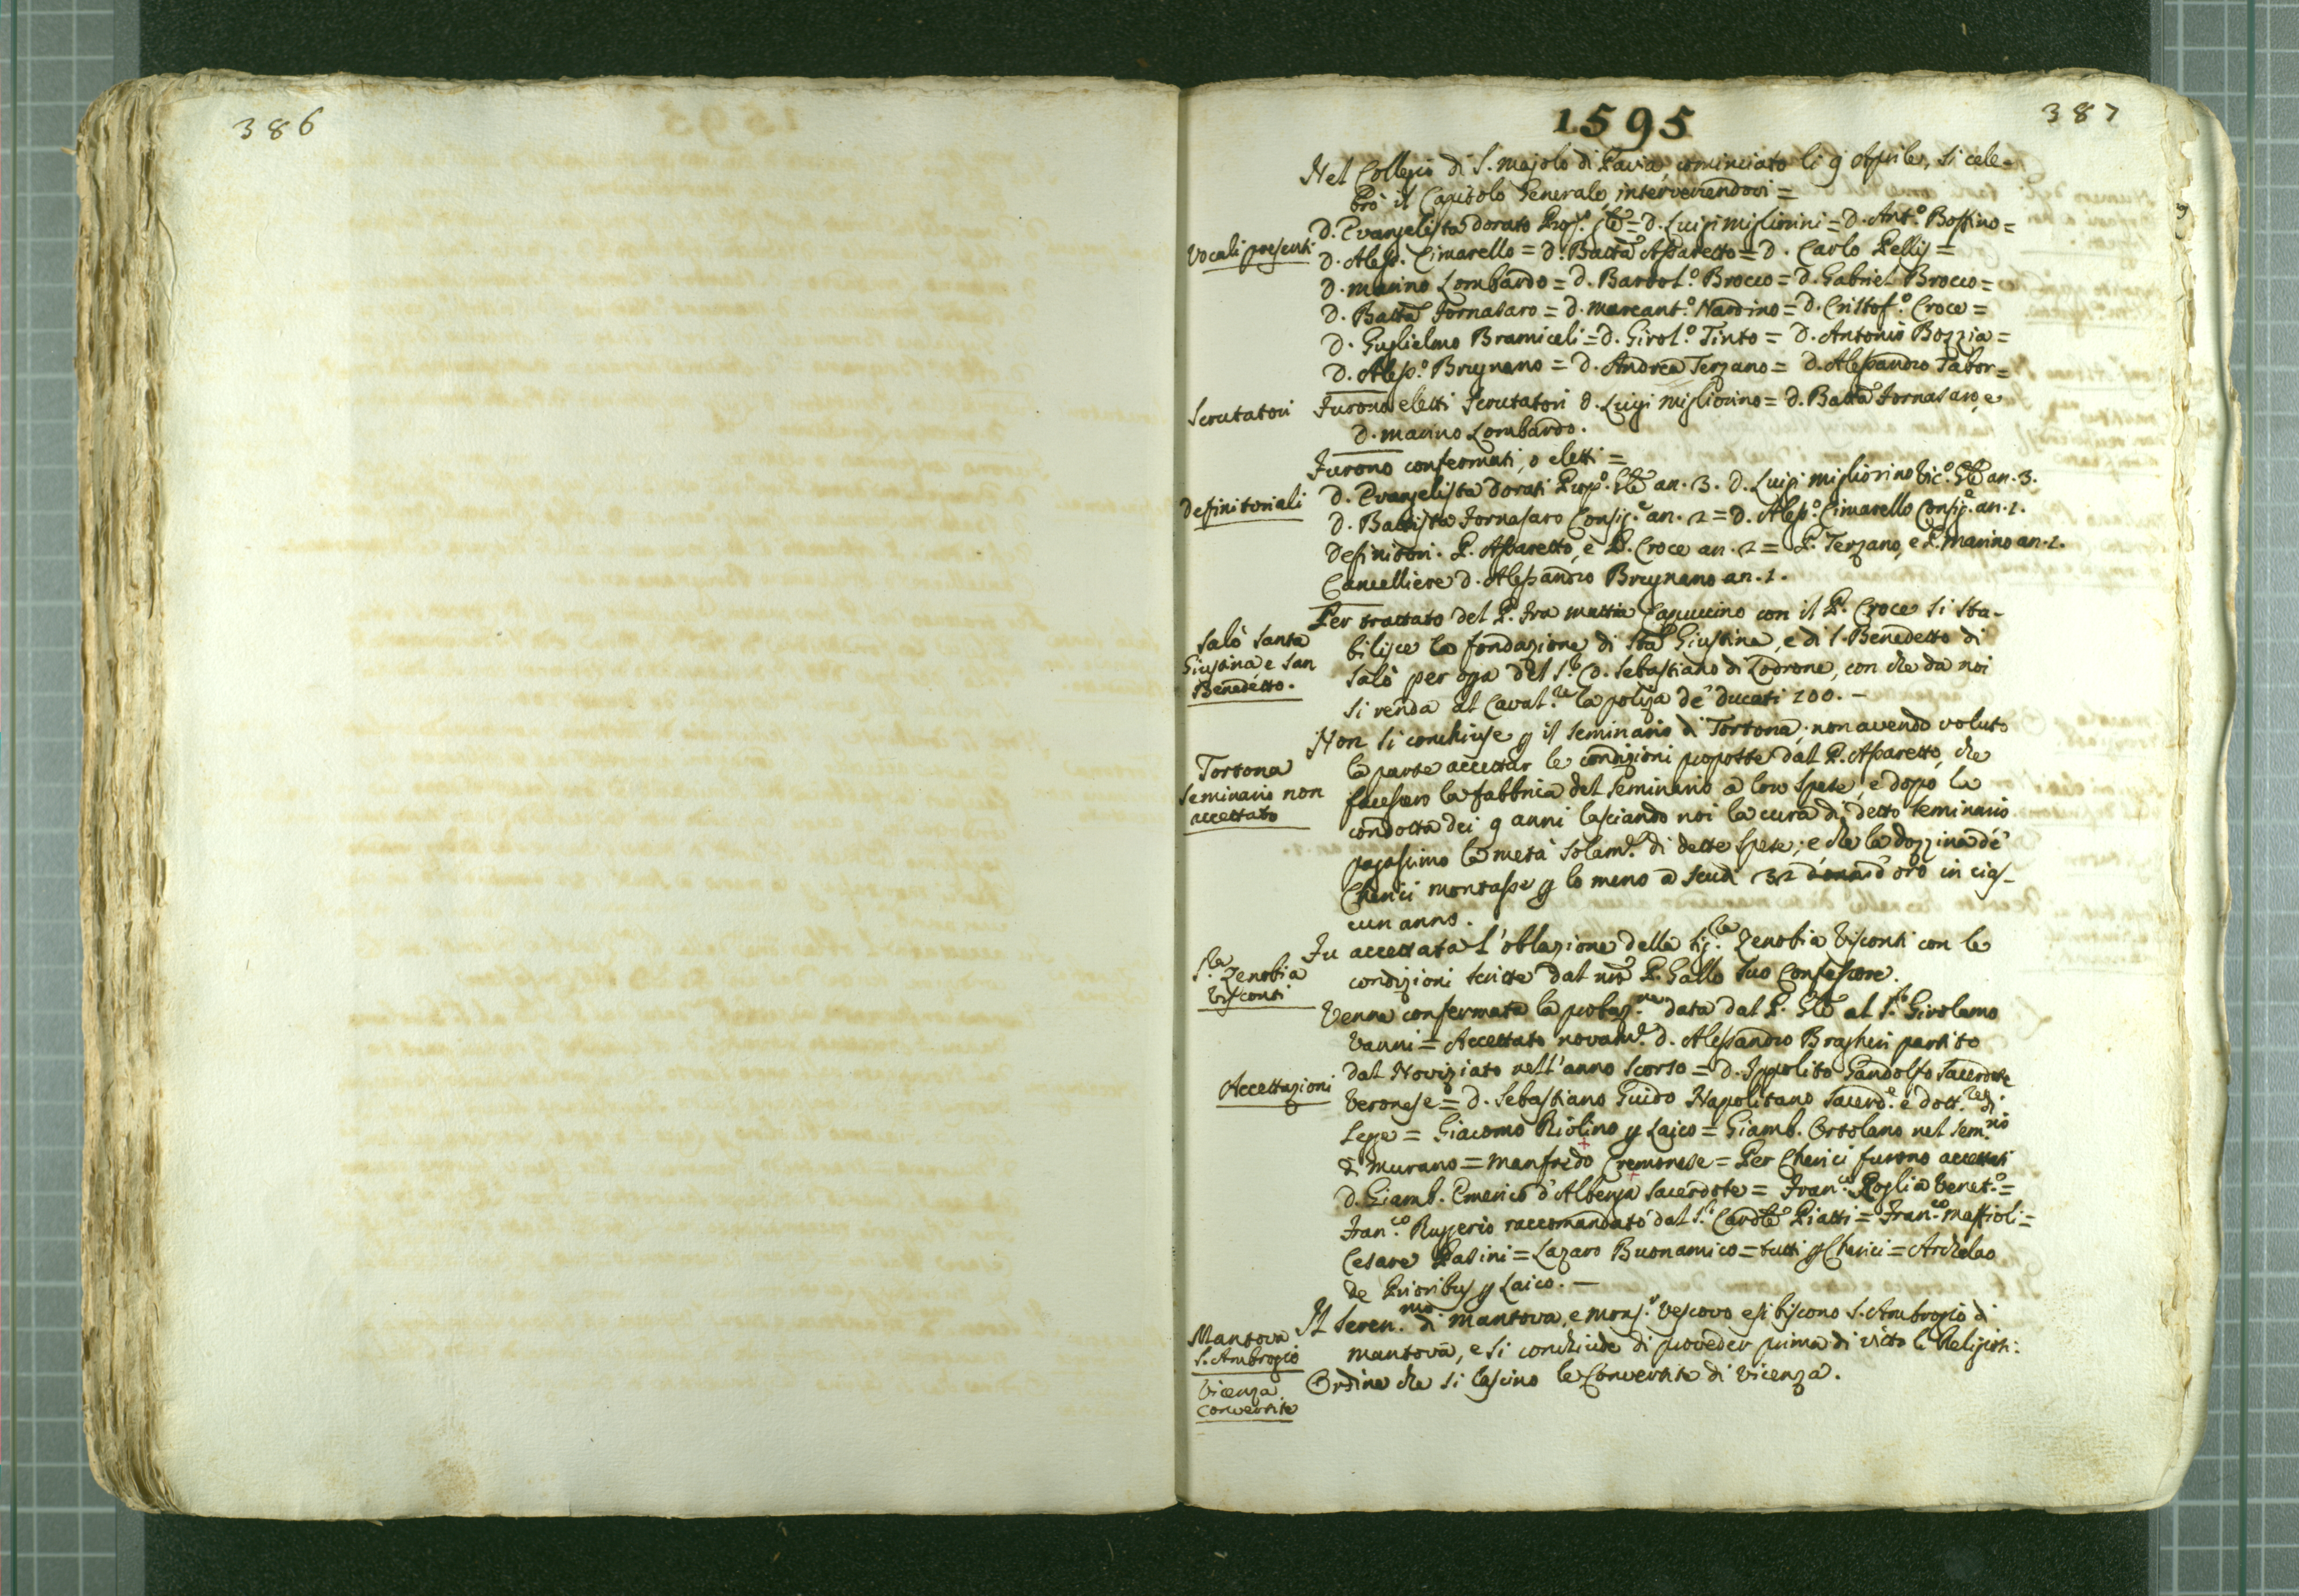 386
387
1595
Nel Collegio di S. Majolo di Pavia, cominciato li 9 Aprile, si cele-
brò il Capitolo Generale, intervenendovi =
Vocali presenti
D. Evangelista Dorato Prep.º Gle = D. Luigi Migliorini = D. Ant.º Boffino =
D. Aless. Cimarello = D. Batta Assaretto = D. Carlo Pellij =
D. Marino Lombardo = D. Bartol.º Brocco = D. Gabriel Brocco =
D. Batta Fornasaro = D. Marcant.º Nardino = D. Cristof.º Croce =
D. Guglielmo Bramiceli = D. Girol.º Tinto = D. Antonio Bozzia =
D. Aless.º Brugnano = D. Andrea Terzano = D. Alessandro Tabor =
Scrutatori
Furono eletti Scrutatori D. Luigi Migliorino = D. Batta Fornasaro, e
D. Marino Lombardo.
Furono confermati, o eletti =
Definitoriali
D. Evangelista Dorati Prep.º Gle an. 3. D. Luigi Migliorino Vic.º Gle an. 3.
D. Battista Fornasaro Consig.e an. 2 = D. Aless.º Cimarello Consig.e an. 1.
Definitori. P. Assaretto, e P. Croce an. 2 = P. Terzano, e P. Marino an. 1.
Cancelliere D. Alessandro Brugnano an. 1.
Salò Santa
Giustina e San
Benedetto.
Per trattato del P. Fra Mattia Capuccino con il P. Croce si sta-
bilisce la fondazione di Sta Giustina, e di S. Benedetto di
Salò per opa del S.r C. Sebastiano di Lodrone, con che da noi
si renda al Caval.re la poliza de' ducati 200. -
Tortona
Seminario non
accettato
Non si conchiuse p il Seminario di Tortona, non avendo voluto
la parte accettar le condizioni proposte dal P. Assaretto, che
facessero la fabbrica del Seminario a loro spese, e dopo la
condotta dei 9 anni lasciando noi la cura di detto Seminario
pagassimo la metà solam.e di dette spese; e che la dozzina de'
Cherici montasse p lo meno a scudi 32 d'oro in cias-
cun anno.
S.ra Zenobia
Visconti
Fu accettata l'oblazione della Sig.ra Zenobia Visconti con le
condizioni scritte dal nro P. Gallo suo Confessore.
Accettazioni
Venne confermata la probaz.ne data dal P. Gle al S.r Girolamo
Vanni = Accettato novam.e D. Alessandro Bragheri partito
dal Noviziato nell'anno scorso = D. Ippolito Gandolfo Sacerdote
Veronese = D. Sebastiano Guido Napolitano Sacerd.e e dott.re di
Lege = Giacomo Riolino p Laico = Giamb. Ortolano nel Sem.rio
di Murano = Manfredo Cremonese = Per Cherici furono accettati
D. Giamb. Emerico d'Albenga Sacerdote = Fran.co Roglia Venet.º =
Fran.co Rugerio raccomandato dal S.r Cardle Piatti = Fran.co Maffioli =
Cesare Pasini = Lazaro Buonamico = tutti p Cherici = Archelao
de Prioribus p Laico. -
Mantova
S. Ambrogio
Il Seren.mo di Mantova, e Mons.r Vescovo esibiscono S. Ambrogio di
Mantova, e si conchiude di proveder prima di vitto li Religiosi:
Vicenza
Convertite
Ordine che si lascino le Convertite di Vicenza.